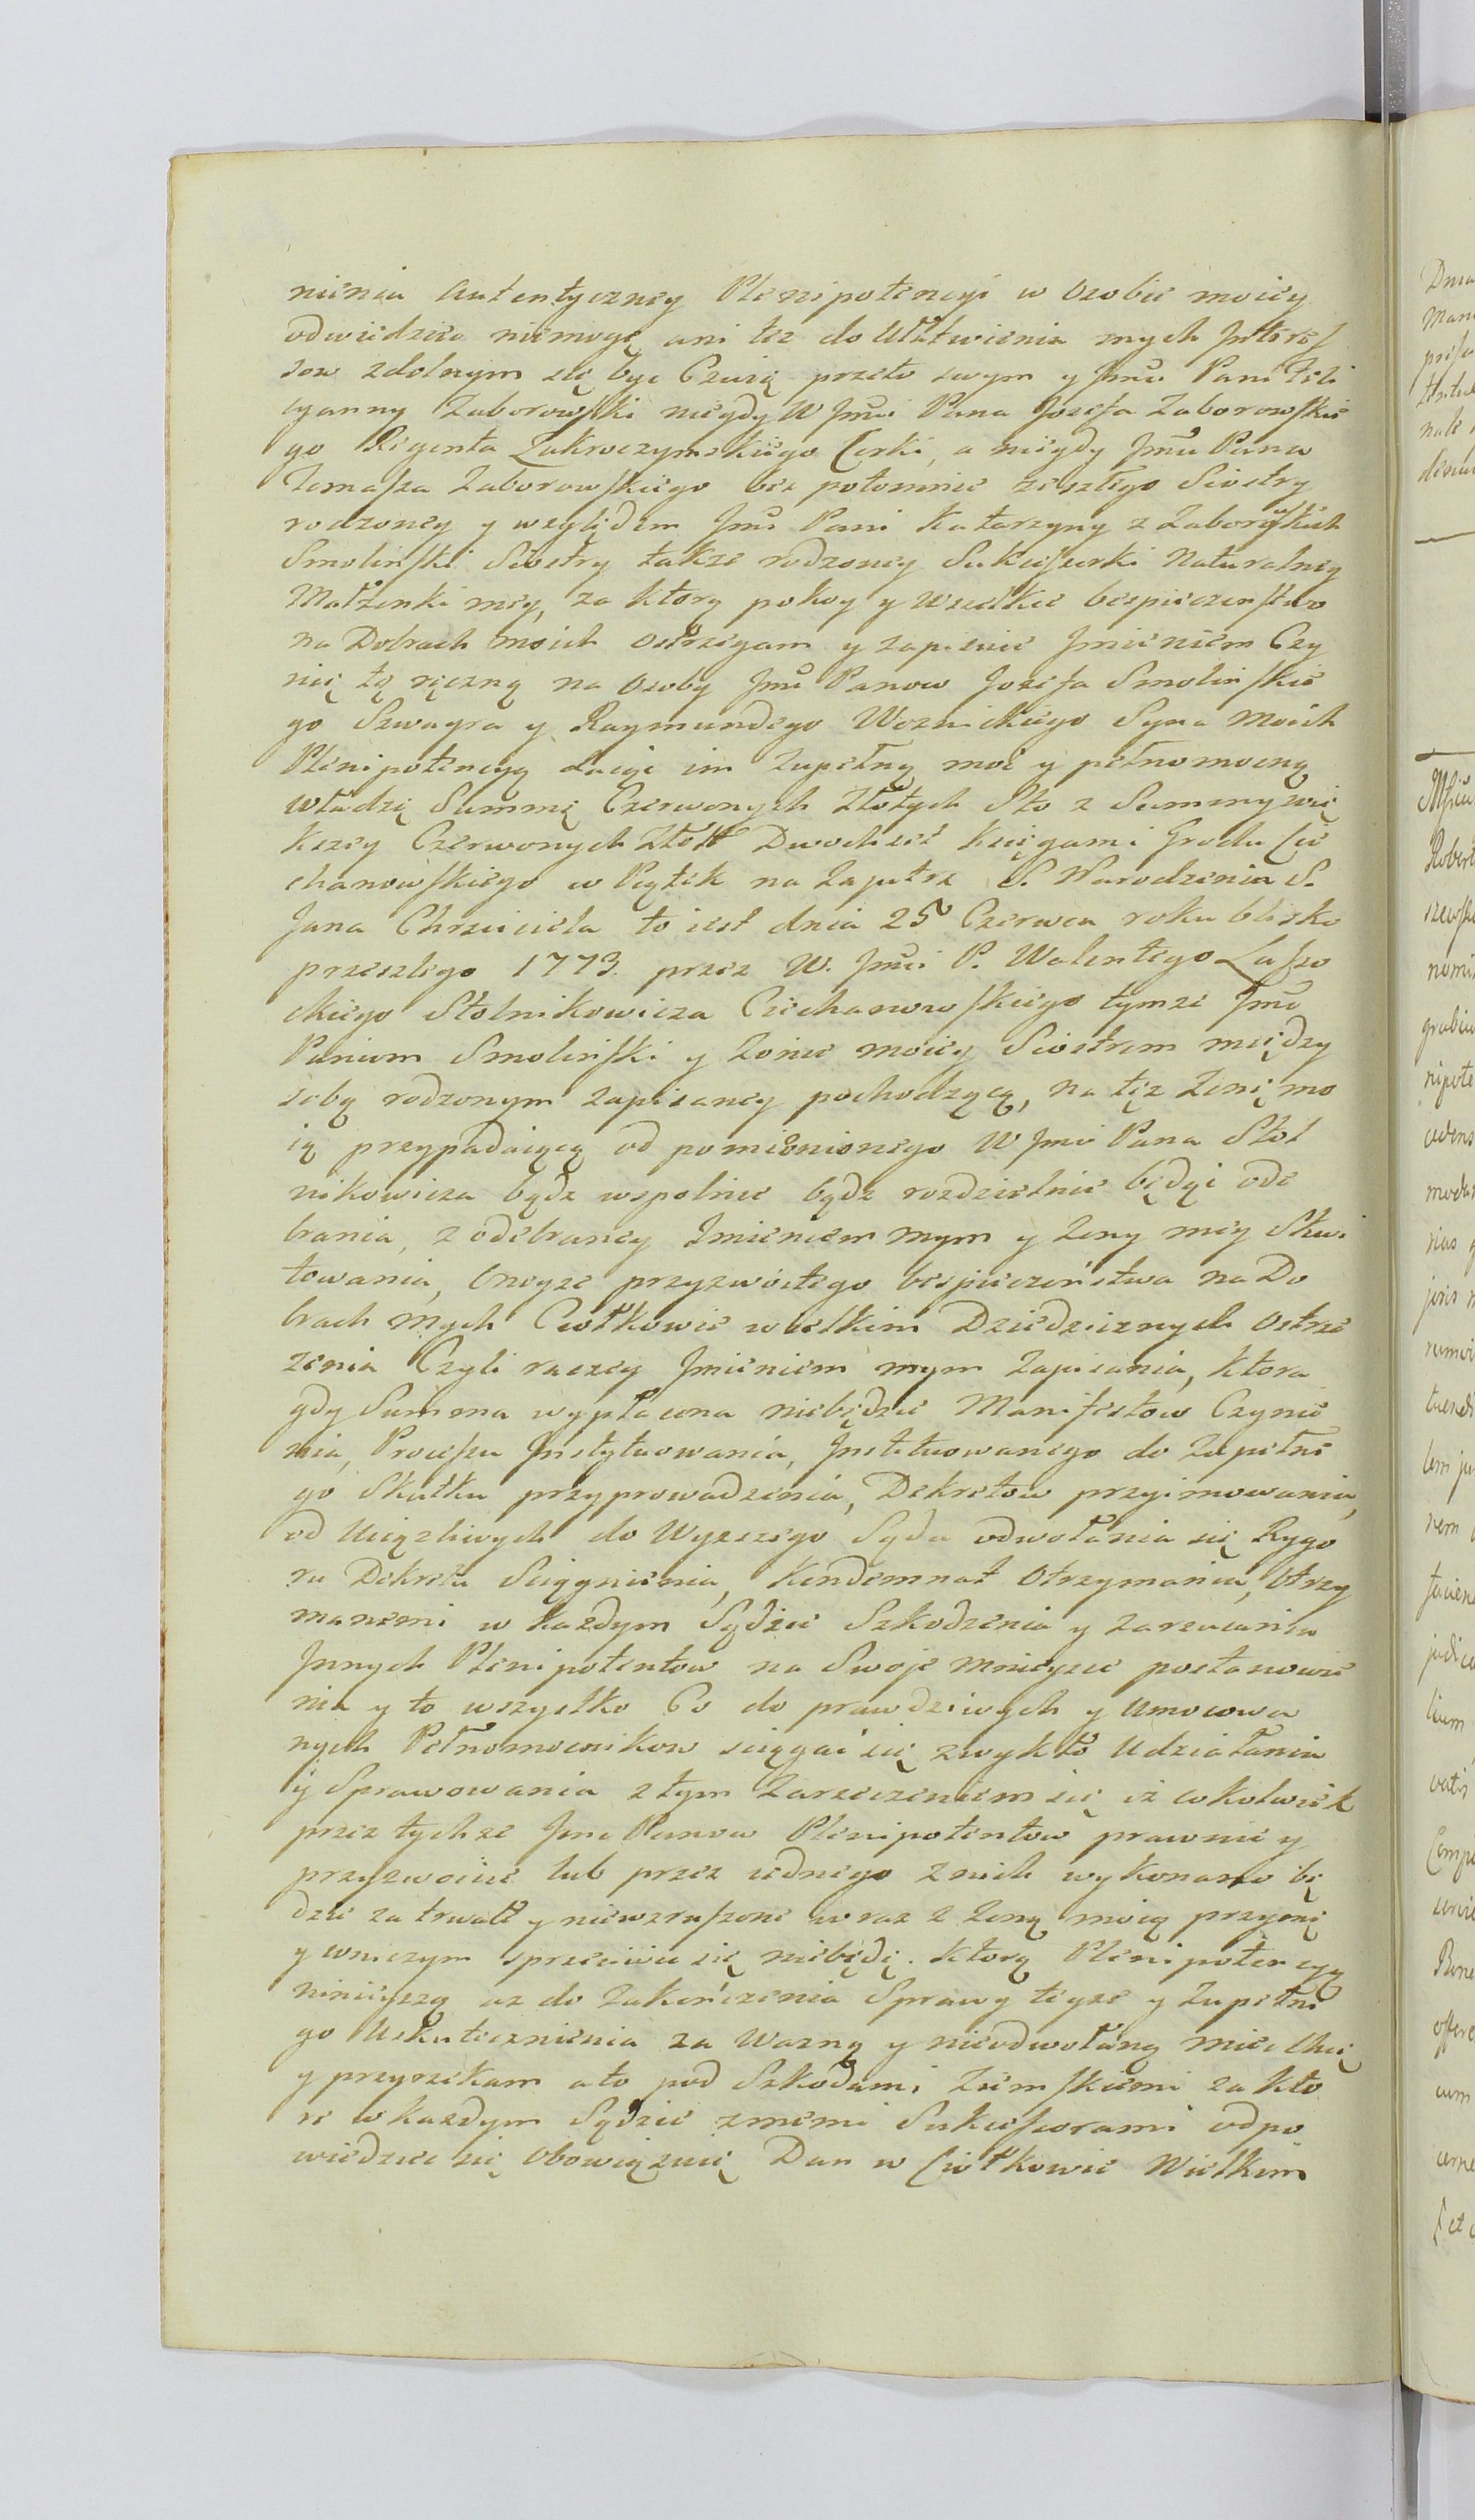 nienia autentyczney Plenipotencyi w Osobie moiey
odwiedzieć niemogę ani tez do Ułatwienia mych Interes
sow zdolnym się bydz Czuię przeto swym y Jmci Pani Feli
cyanny Zaborowski niegdy W Jmci Pana Jozefa Zaborowskie
go Regenta Zakroczymskiego Corki, a niegdy Jmci Pana
Tomasza Zaborowskiego bez potomnie zeszłego Siostry
rodzoney y względem Jmci Pani Katarzyny z Zaborowskich
Smolinski Siostry takze rodzoney Sukcessorki Naturalney
Małzonki mey, za którą pokoy y Wszelkie bespieczenstwo
na Dobrach moich Ostrzegam y zapisuie Jmieniem Czy
nię tę ręczną na Osoby Jmci Panow Jozefa Smolinskie
go Szwagra y Raymundego Woznickiego Syna Moich
Plenipotencyą daiąc im Zupełną moc y pełnomocną
władzę Summę Czerwonych Złotych Sto z Summy wię
kszey Czerwonych Złott Dwochset Księgami Grodu Cie
chanowskiego w Piątek na Zaiutrz S. Narodzenia S.
Jana Chrzciciela to iest dnia 25 Czerwca roku blisko
przeszlego 1773. przez W. Jmci P. Walentego Lasso
ckiego Stolnikowicza Ciechanowskiego tymze Jmc
Paniom Smolinski y Zonie moiey Siostrom między
sobą rodzonym zapisaney pochodzącą, na tęz Zonę mo
ię przypadaiącą od pomienionego W Jmci Pana Stol
nikowicza bądz wspolnie bądz rozdzielnie będąc ode
brania, z odebraney Jmieniem mym y Zony mey Skwi
towania, Oneyze przyzwoitego bespieczeństwa na Do
brach Mych Ciołkowie wielkim Dziedzicznych Ostrze
zenia Czyli raczey Jmieniem mym Zapisania, Ktora
gdy Summa wypłacona niebędzie Manifestow Czynie
nia, Processu Jnstytuowania, Jnstytuowanego do Zupełne
go Skutku przyprowadzenia, Dekretow przyimowania,
od Uciązliwych do Wyzszego Sądu odwołania się Rygo
ru Dekretu Sciągnienia, Kondemnat Otrzymania, Otrzy
manemi w kazdym Sądzie Szkodzenia y zarzucania
Jnnych Plenipotentow na Swoje Mnieysce postanowie
nia y to wszystko Co do prawdziwych y Umocowa
nych Pełnomocnikow sciągać się zwykło Udziałania
y Sprawowania z tym Zarzeczeniem się iz cokolwiek
przez tychze Jmc Panow Plenipotentow prawnie y
przyzwoicie lub przez iednego z nich wykonano bę
dzie za trwałe y niewzruszone wraz z Zoną moią przyimę
y wniczym sprzeciwić się niebędę. Ktorą Plenipotencyą
ninieyszą az do Zakończenia Sprawy teyze y Zupełne
go Uskutecznienia za Wazną y nieodwołaną mieć Chcę
y przyrzekam a to pod Szkodami Ziemskiemi za kto
re w kazdym Sądzie zmemi Sukcessorami odpo
wiedzieć się Obowiązuię Dan w Ciołkowie Wielkim